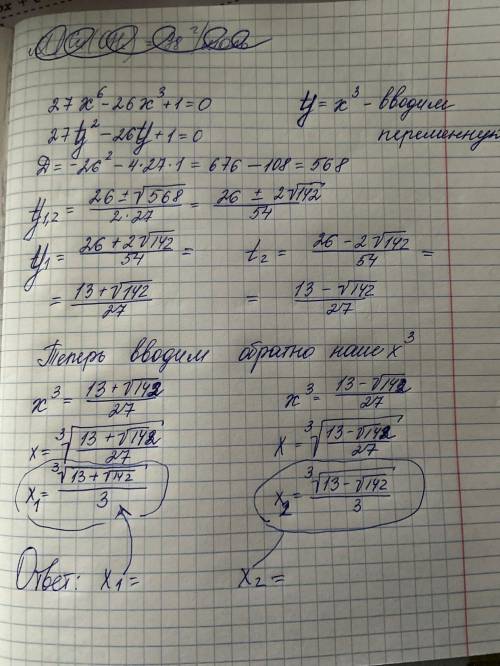 27x⁶ - 26x³ + 1 = 0   y = x³ - вводим переменную
27y² - 26y + 1 = 0
D = -26² - 4·27·1 = 676 - 108 = 568
y₁,₂ = (26 ± √568)/(2·27) = (26 ± 2√142)/54
y₁ = (26 + 2√142)/54 =   t₂ = (26 - 2√142)/54 =
= (13 + √142)/27   = (13 - √142)/27
Теперь вводим обратно наше x³
x³ = (13 + √142)/27   x³ = (13 - √142)/27
x = ∛((13 + √142)/27)   x = ∛((13 - √142)/27)
x₁ = ∛(13 + √142)/3   x₂ = ∛(13 - √142)/3
Ответ: x₁ =   x₂ =